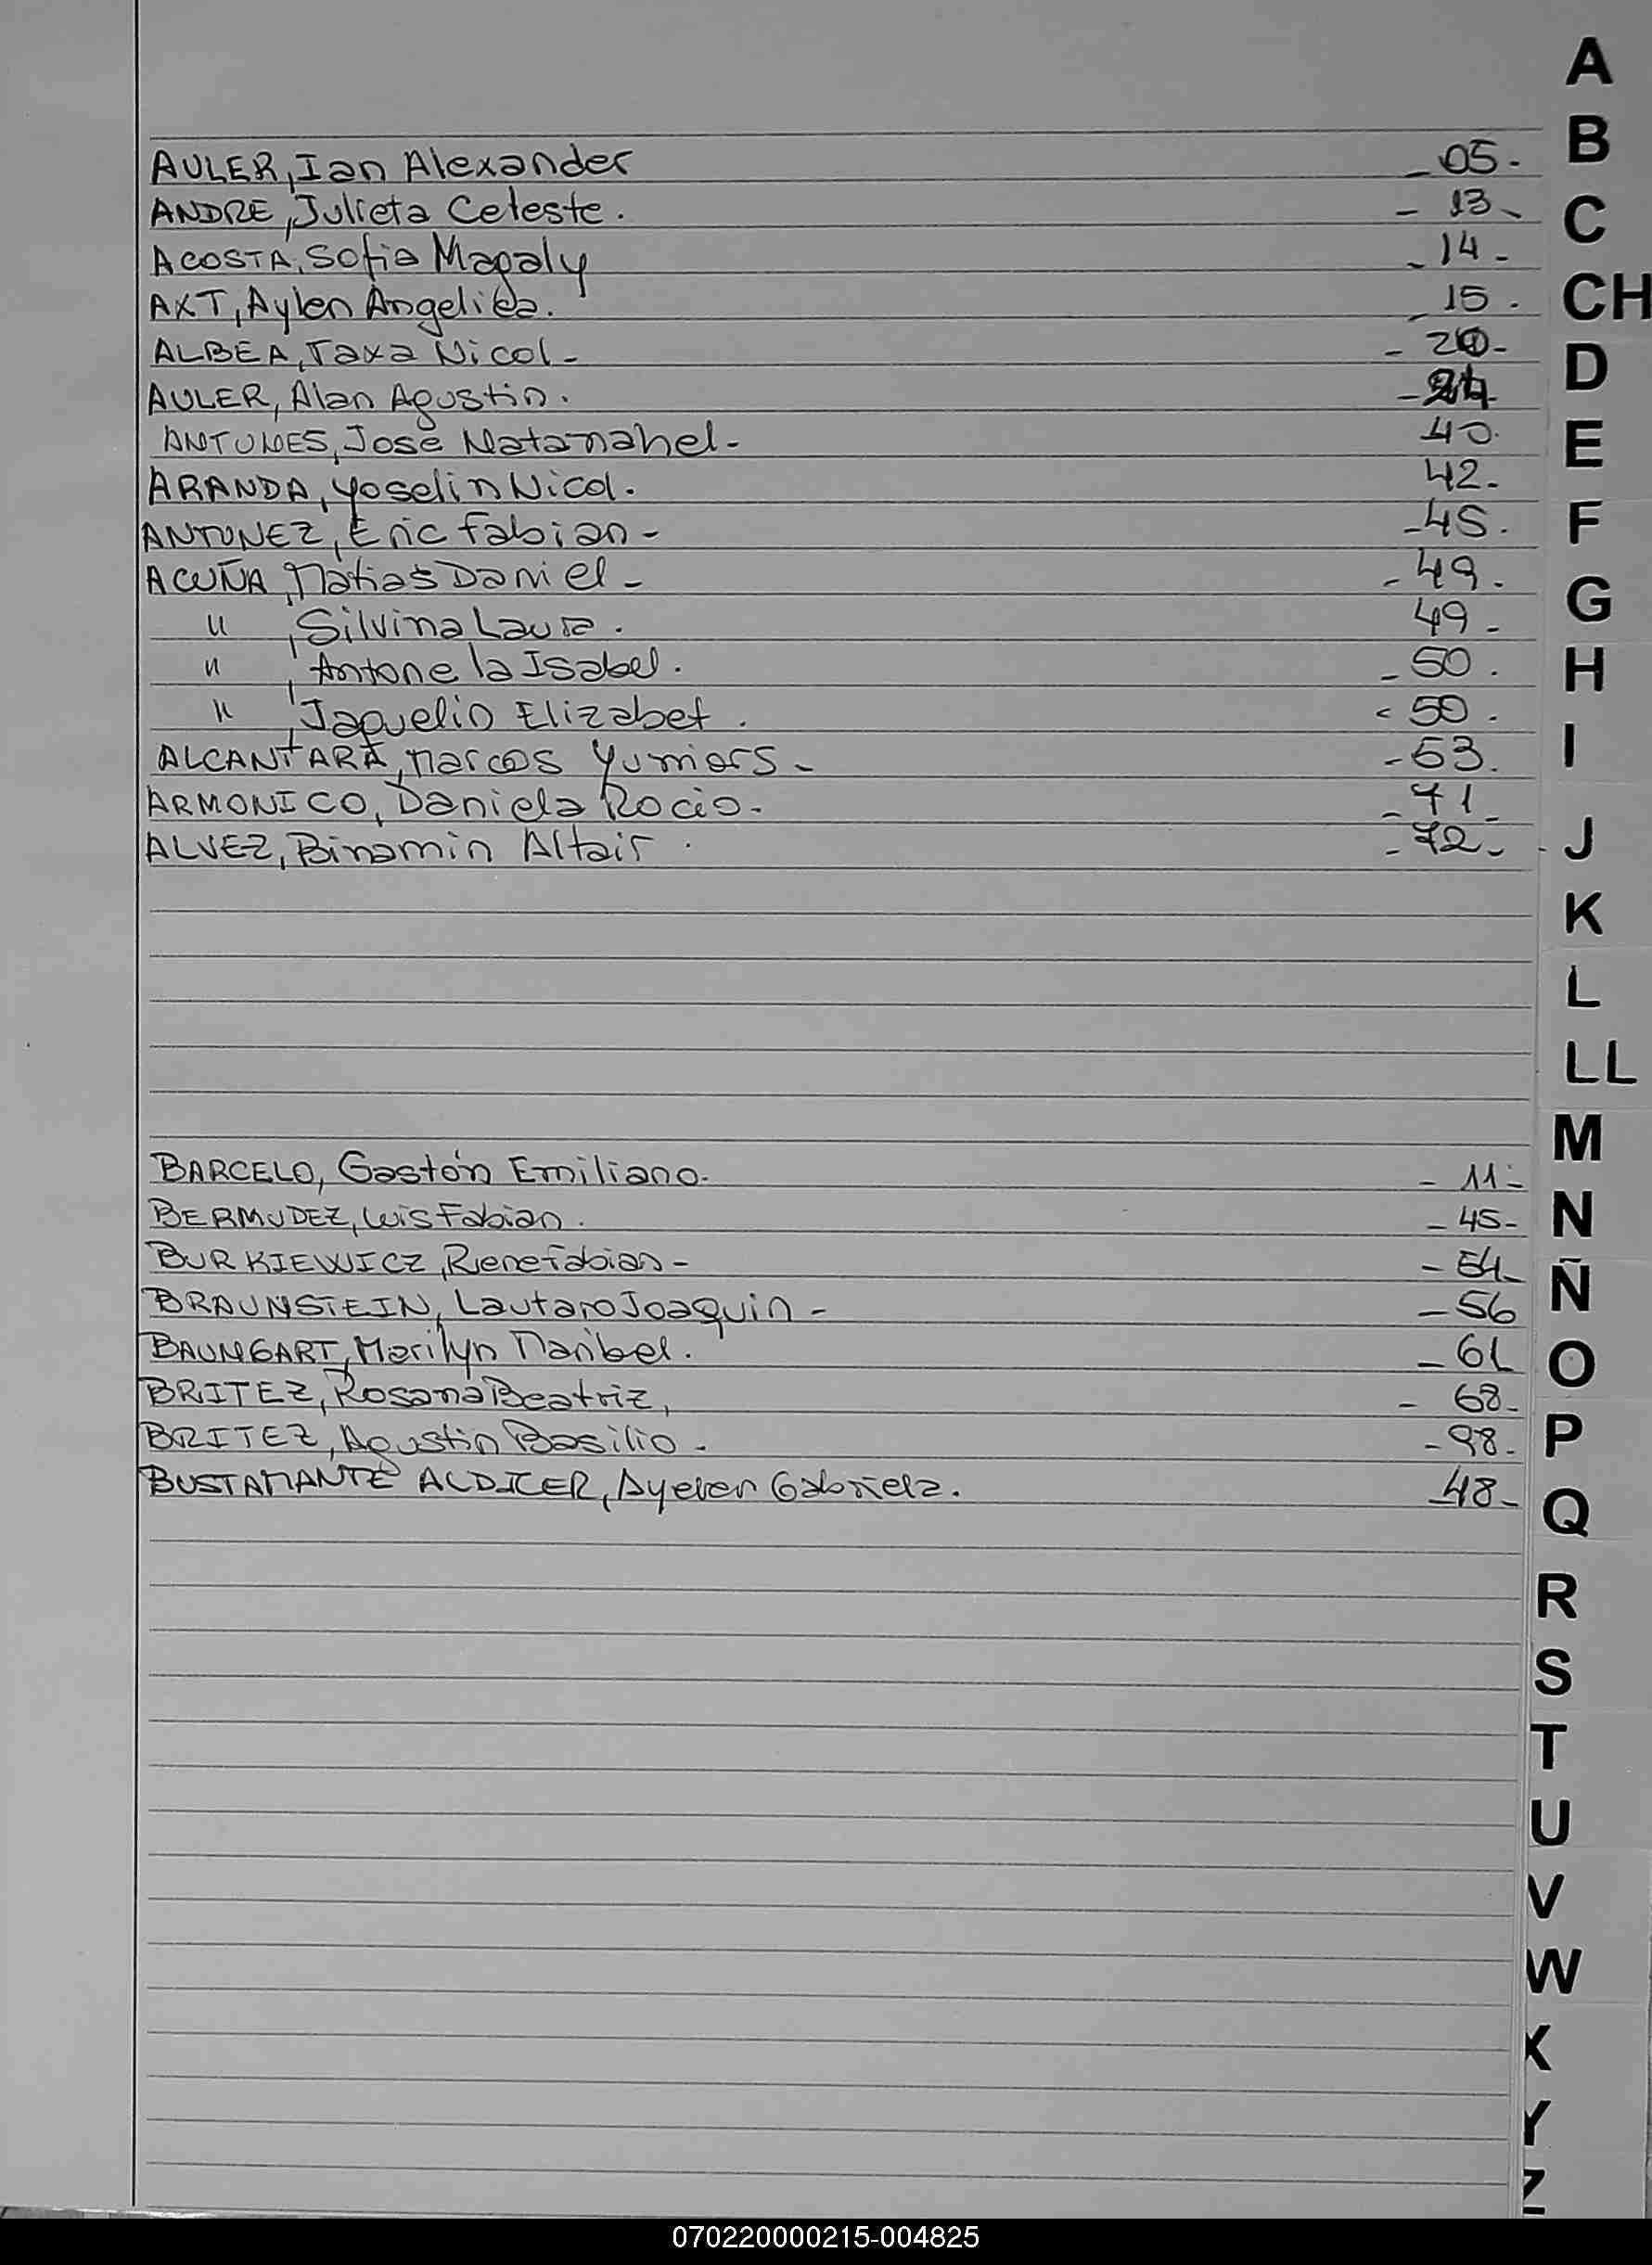 A
B
AULER, Ian Alexander - 05-
ANDRE, Julieta Celeste. - 13-
C
ACOSTA, Sofia Magaly - 14-
AXT, Aylen Angelica. - 15.
CH
ALBEA, Taxa Nicol- - 20-
D
AULER, Alan Agustin.
ANTUNES, José Natanahel- 40.
E
ARANDA, Yoselin Nicol. 42-
ANTUNEZ, Eric Fabian- -45.
F
ACUÑA, Matias Daniel- - 49.
G
" , Silvina Laura. 49-
" , Antonela Isabel. - 50.
H
" , Jaquelin Elizabet. - 50.
ALCANTARA, Marcos Yumiars- -63.
I
ARMONICO, Daniela Rocio- - 71-
ALVEZ, Binamin Altair. - 72-
J
K
L
LL
M
BARCELO, Gastón Emiliano- - 11-
BERMUDEZ, Luis Fabian. - 45-
N
BURKIEWICZ, Rene Fabian- - 54-
Ñ
BRAUNSTEIN, Lautaro Joaquin- - 56
BAUMGART, Marilyn Maribel. - 61
O
BRITEZ, Rosana Beatriz, - 68-
BRITEZ, Agustin Basilio- - 98-
P
BUSTAMANTE ALDICER, Ayelen Gabriela. -48-
Q
R
S
T
U
V
W
X
Y
Z
070220000215-004825